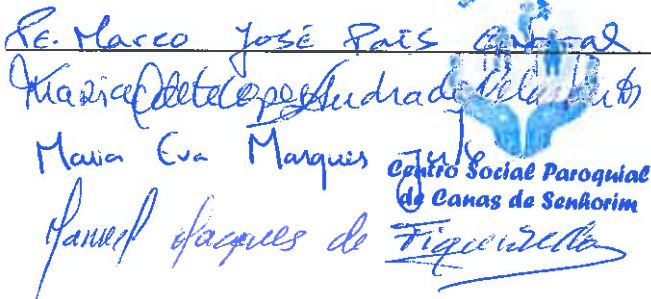 Pe. Marco José Pais Cabral
Maria Odete Lopes Andrade
Maria Eva Marques
Centro Social Paroquial
de Canas de Senhorim
Manuel Jacques de Figueiredo